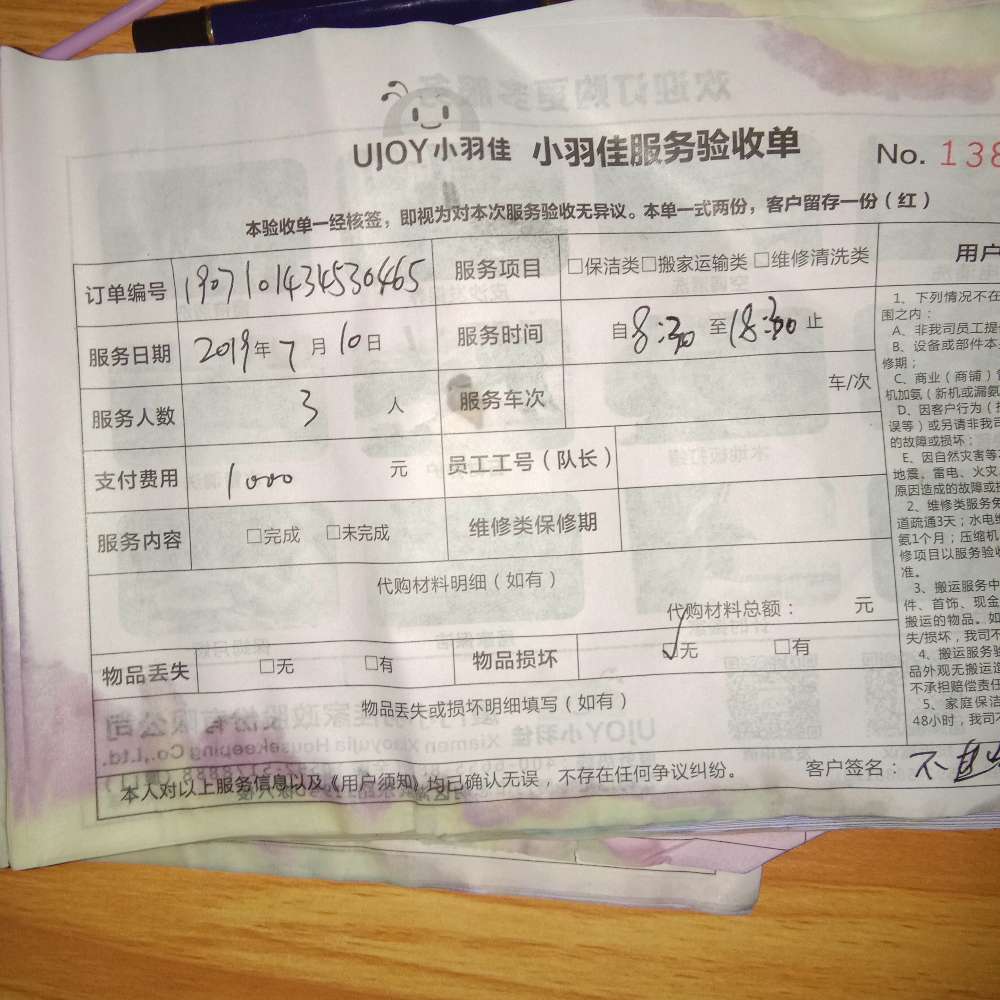 UJOY小羽佳 小羽佳服务验收单 No. 138
本验收单一经核签，即视为对本次服务验收无异议。本单一式两份，客户留存一份（红）
订单编号 190710143453 0465 服务项目 □保洁类□搬家运输类□维修清洗类
服务日期 2019年7月10日 服务时间 自8:30至18:30止
服务人数 3人 服务车次 车/次
支付费用 1000元 员工工号（队长）
服务内容 □完成 □未完成 维修类保修期
代购材料明细（如有）
代购材料总额： 元
物品丢失 □无 □有 物品损坏 ☑无 □有
物品丢失或损坏明细填写（如有）
本人对以上服务信息以及《用户须知》均已确认无误，不存在任何争议纠纷。 客户签名：不
用户
1、下列情况不在
围之内：
A、非我司员工提
B、设备或部件本
修期；
C、商业（商铺）
机加氨（新机或漏氨
D、因客户行为（
误等）或另请非我司
的故障或损坏；
E、因自然灾害等
地震、雷电、火灾
原因造成的故障或损
2、维修类服务免
道疏通3天；水电维
氨1个月；压缩机
修项目以服务验收
准。
3、搬运服务中
件、首饰、现金
搬运的物品。如
失/损坏，我司不
4、搬运服务验
品外观无搬运造
不承担赔偿责任
5、家庭保洁
48小时，我司不